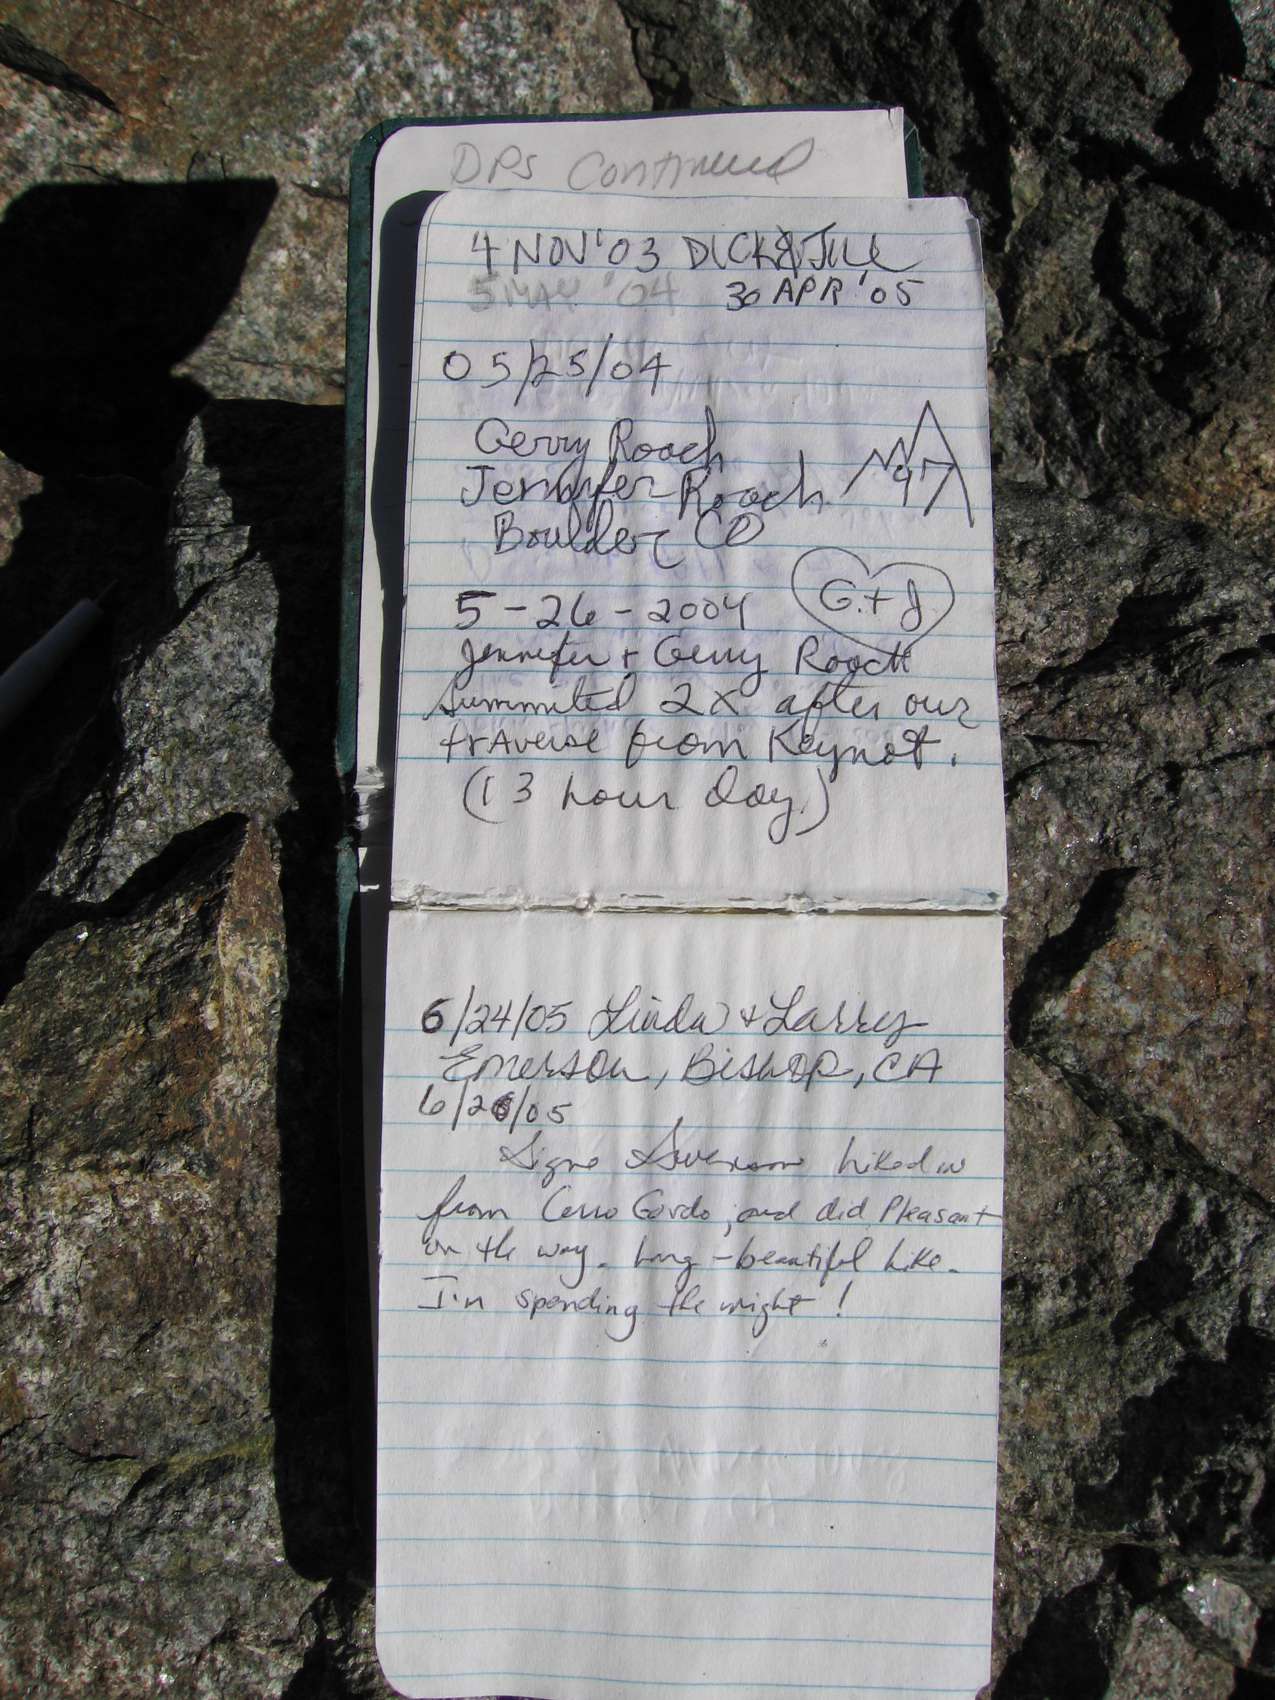 DPS Continued
4 NOV '03 DICK & JILL
5 MAY '04 30 APR '05
05/25/04
Gerry Roach
Jennifer Roach 97
Boulder CO
G. + J.
5-26-2004
Jennifer + Gerry Roach
summited 2X after our
trAverse from Keynot.
(13 hour day)
6/24/05 Linda & Larry
Emerson, Bishop, CA
6/26/05
Signe Swenson hiked in
from Cerro Gordo, and did Pleasant
on the way. Long - beautiful hike.
I'm spending the night!